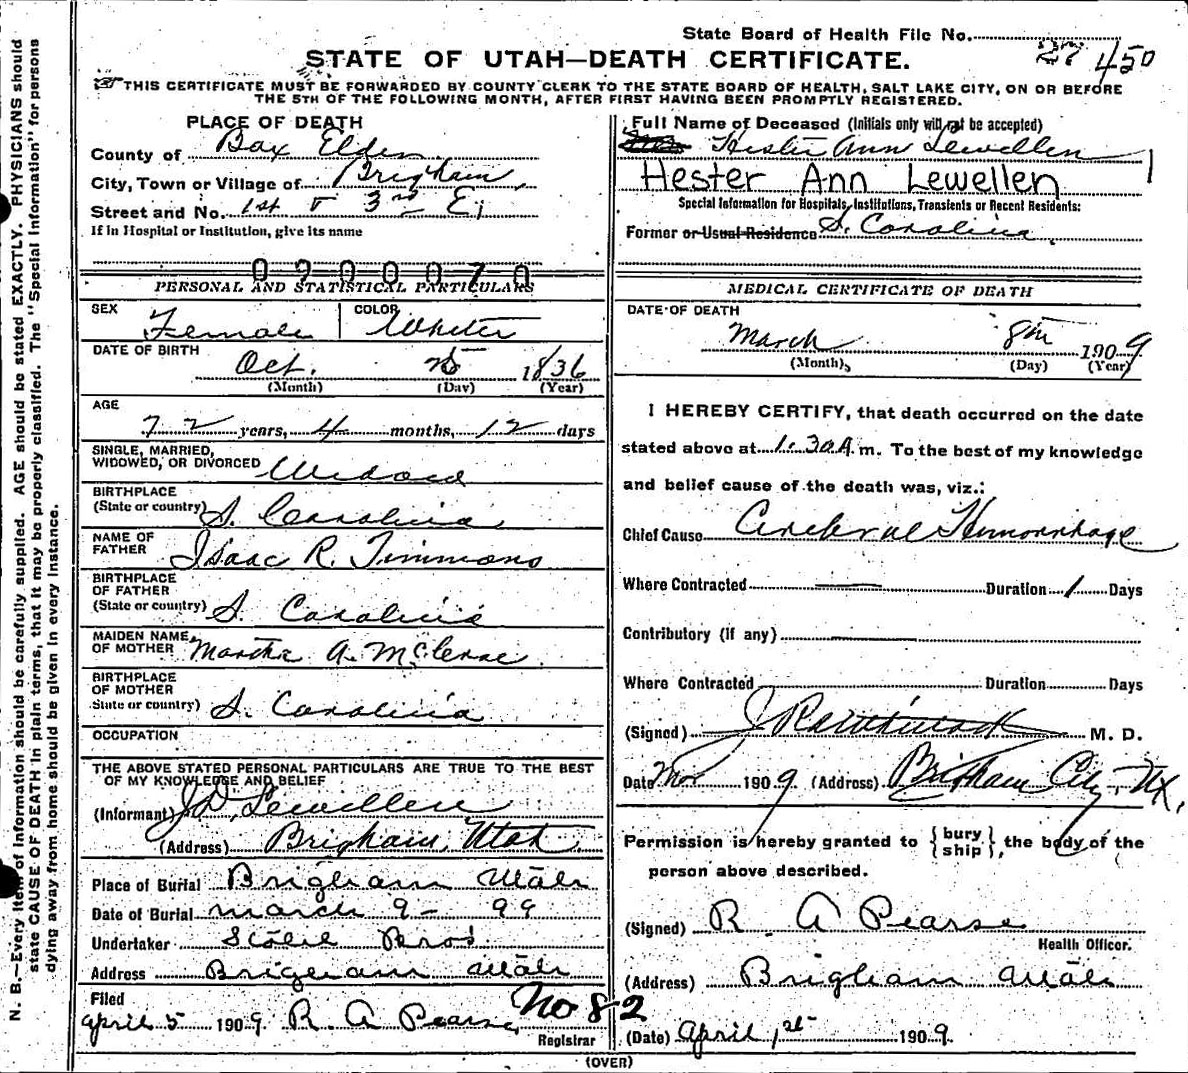 State Board of Health File No. 27 450
STATE OF UTAH—DEATH CERTIFICATE.
THIS CERTIFICATE MUST BE FORWARDED BY COUNTY CLERK TO THE STATE BOARD OF HEALTH, SALT LAKE CITY, ON OR BEFORE
THE 5TH OF THE FOLLOWING MONTH, AFTER FIRST HAVING BEEN PROMPTLY REGISTERED.
PLACE OF DEATH
County of Box Elder
City, Town or Village of Brigham
Street and No. 1st & 3rd E.
If in Hospital or Institution, give its name
0900070
PERSONAL AND STATISTICAL PARTICULARS
SEX Female COLOR White
DATE OF BIRTH Oct. 25 1836
(Month) (Day) (Year)
AGE
72 years, 4 months, 12 days
SINGLE, MARRIED,
WIDOWED, OR DIVORCED Widowed
BIRTHPLACE
(State or country) S. Carolina
NAME OF
FATHER Isaac R. Timmons
BIRTHPLACE
OF FATHER
(State or country) S. Carolina
MAIDEN NAME
OF MOTHER Martha A.
BIRTHPLACE
OF MOTHER
State or country) S. Carolina
OCCUPATION
THE ABOVE STATED PERSONAL PARTICULARS ARE TRUE TO THE BEST
OF MY KNOWLEDGE AND BELIEF
(Informant) J. D. Lewellen
(Address) Brigham, Utah
Place of Burial Brigham Utah
Date of Burial March 9 - 99
Undertaker Bros.
Address Brigham Utah
Filed
April 5 1909. R. A Pearse
Registrar
No 82
Full Name of Deceased (Initials only will not be accepted)
Hester Ann Lewellen
Hester Ann Lewellen
Special Information for Hospitals, Institutions, Transients or Recent Residents:
Former or Usual Residence S. Carolina
MEDICAL CERTIFICATE OF DEATH
DATE OF DEATH
March 8th 1909
(Month) (Day) (Year)
I HEREBY CERTIFY, that death occurred on the date
stated above at 1:30 A. m. To the best of my knowledge
and belief cause of the death was, viz.:
Chief Cause Cerebral Hemorrhage
Where Contracted Duration 1 Days
Contributory (if any)
Where Contracted Duration Days
(Signed) M. D.
Date 1909 (Address) Brigham City, Ut.
Permission is hereby granted to {bury ship}, the body of the
person above described.
(Signed) R. A Pearse
Health Officer.
(Address) Brigham Utah
(Date) April 1st 1909.
(OVER)
N. B.—Every item of Information should be carefully supplied. AGE should be stated EXACTLY. PHYSICIANS should
state CAUSE OF DEATH in plain terms, that it may be properly classified. The "Special Information" for persons
dying away from home should be given in every instance.